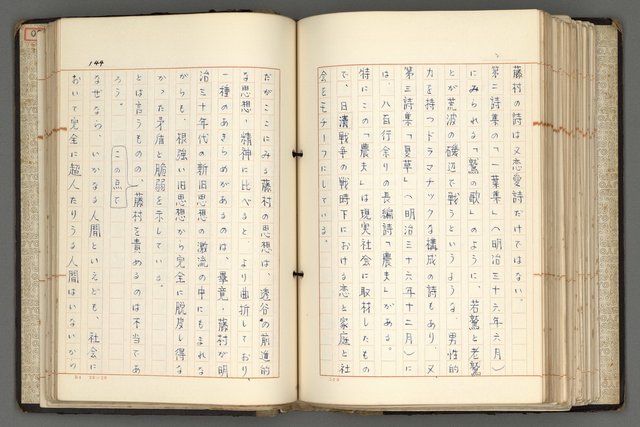 藤村の詩は又恋愛詩だけではない。
第二詩集の「一葉集」(明治三十六年六月)
にみられる「鷲の歌」のように、若鷲と老鷲
とが荒波の磯辺で戦うというような、男性的
力を持つドラマチックな構成の詩もあり、又
第三詩集「夏草」(明治三十六年十二月)に
は、八百行余りの長編詩「農夫」がある。
特にこの「農夫」は現実社会に取材したもの
で、日清戦争の戦時下における恋と家庭と社
会をモチーフにしている。
144
だがここにみる藤村の思想は、透谷の前進的
な思想・精神に比べると、より曲折しており
一種のあきらめがあるのは、畢竟・藤村が明
治三十年代の新旧思想の激流の中にもまれな
がらも、根強い旧思想から完全に脱皮し得な
かった矛盾と脆弱を示している。
とは言うものの、藤村を責めるのは不当であ
ろう。
この点で
なぜなら、いかなる人間といえども、社会に
おいて完全に超人たりうる人間はいないから